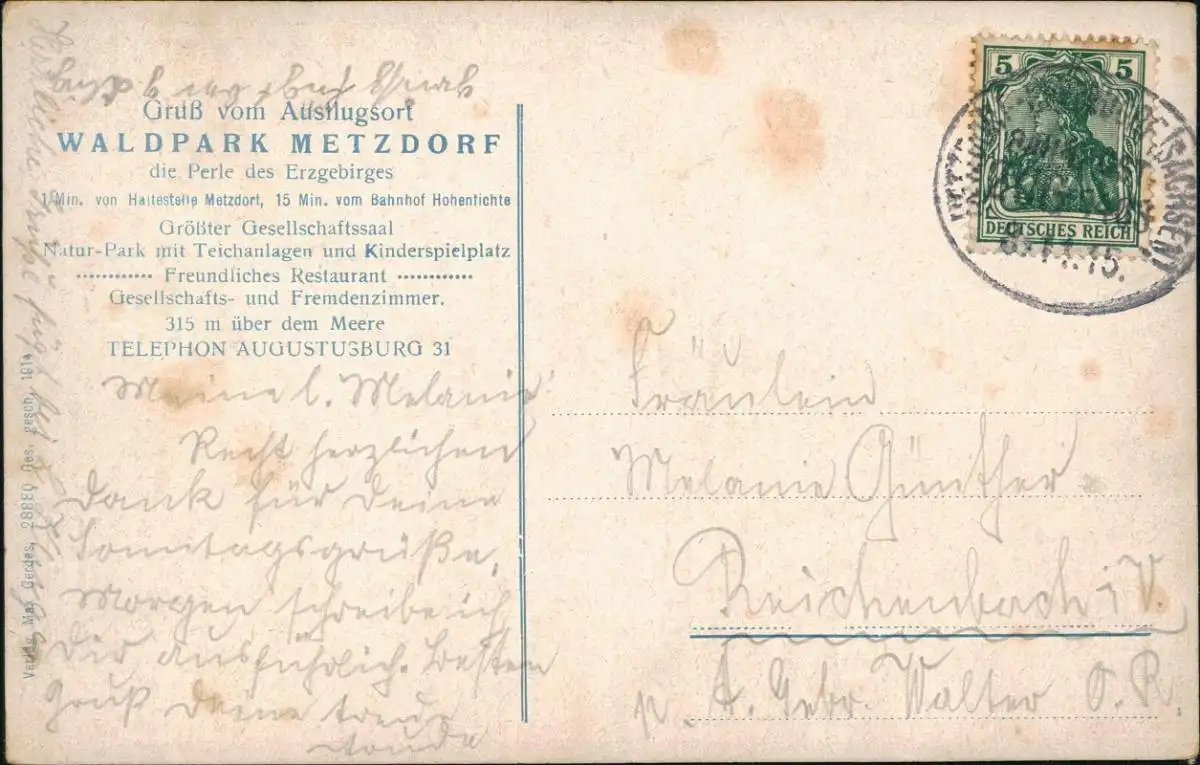 Gruß vom Ausflugsort
WALDPARK METZDORF
die Perle des Erzgebirges
1 Min. von Haltestelle Metzdorf, 15 Min. vom Bahnhof Hohenfichte
Größter Gesellschaftssaal
Natur-Park mit Teichanlagen und Kinderspielplatz
Freundliches Restaurant
Gesellschafts- und Fremdenzimmer.
315 m über dem Meere
TELEPHON AUGUSTUSBURG 31
Meine l. Melanie!
Recht herzlichen
Dank für Deine
Sonntagsgrüße,
Morgen schreibe ich
Dir ausführlich. Besten
Gruß Deine treue
Herzliche Grüße
Verlag Max Gerdes, 28880 Ges. gesch. 1914
5 5
DEUTSCHES REICH
(SACHSEN)
8.11.15.
Fräulein
Melanie Günther
Reichenbach i V.
p. A. Gebr. Walter O. R.